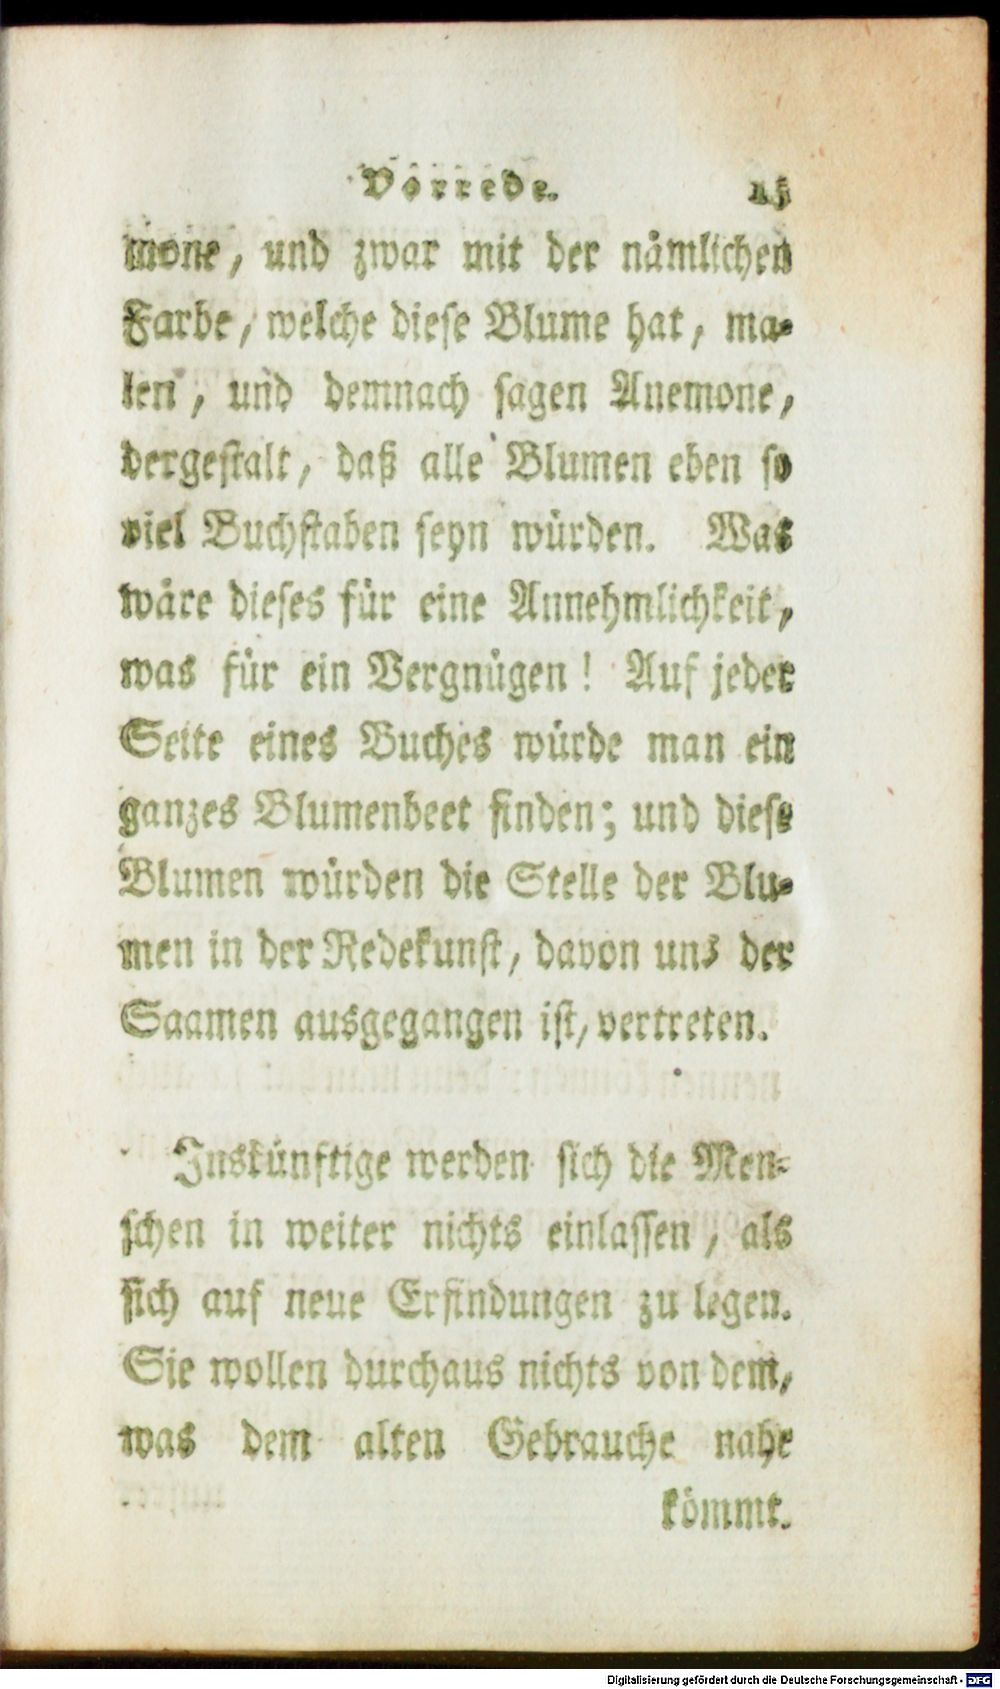 Vorrede. 15
mone, und zwar mit der nämlichen
Farbe, welche diese Blume hat, ma-
len, und demnach sagen Anemone,
dergestalt, daß alle Blumen eben so
viel Buchstaben seyn würden. Was
wäre dieses für eine Annehmlichkeit,
was für ein Vergnügen! Auf jeder
Seite eines Buches würde man ein
ganzes Blumenbeet finden; und diese
Blumen würden die Stelle der Blu-
men in der Redekunst, davon uns der
Saamen ausgegangen ist, vertreten.
Inskünftige werden sich die Men-
schen in weiter nichts einlassen, als
sich auf neue Erfindungen zu legen.
Sie wollen durchaus nichts von dem,
was dem alten Gebrauche nahe
kömmt.
Digitalisierung gefördert durch die Deutsche Forschungsgemeinschaft - DFG